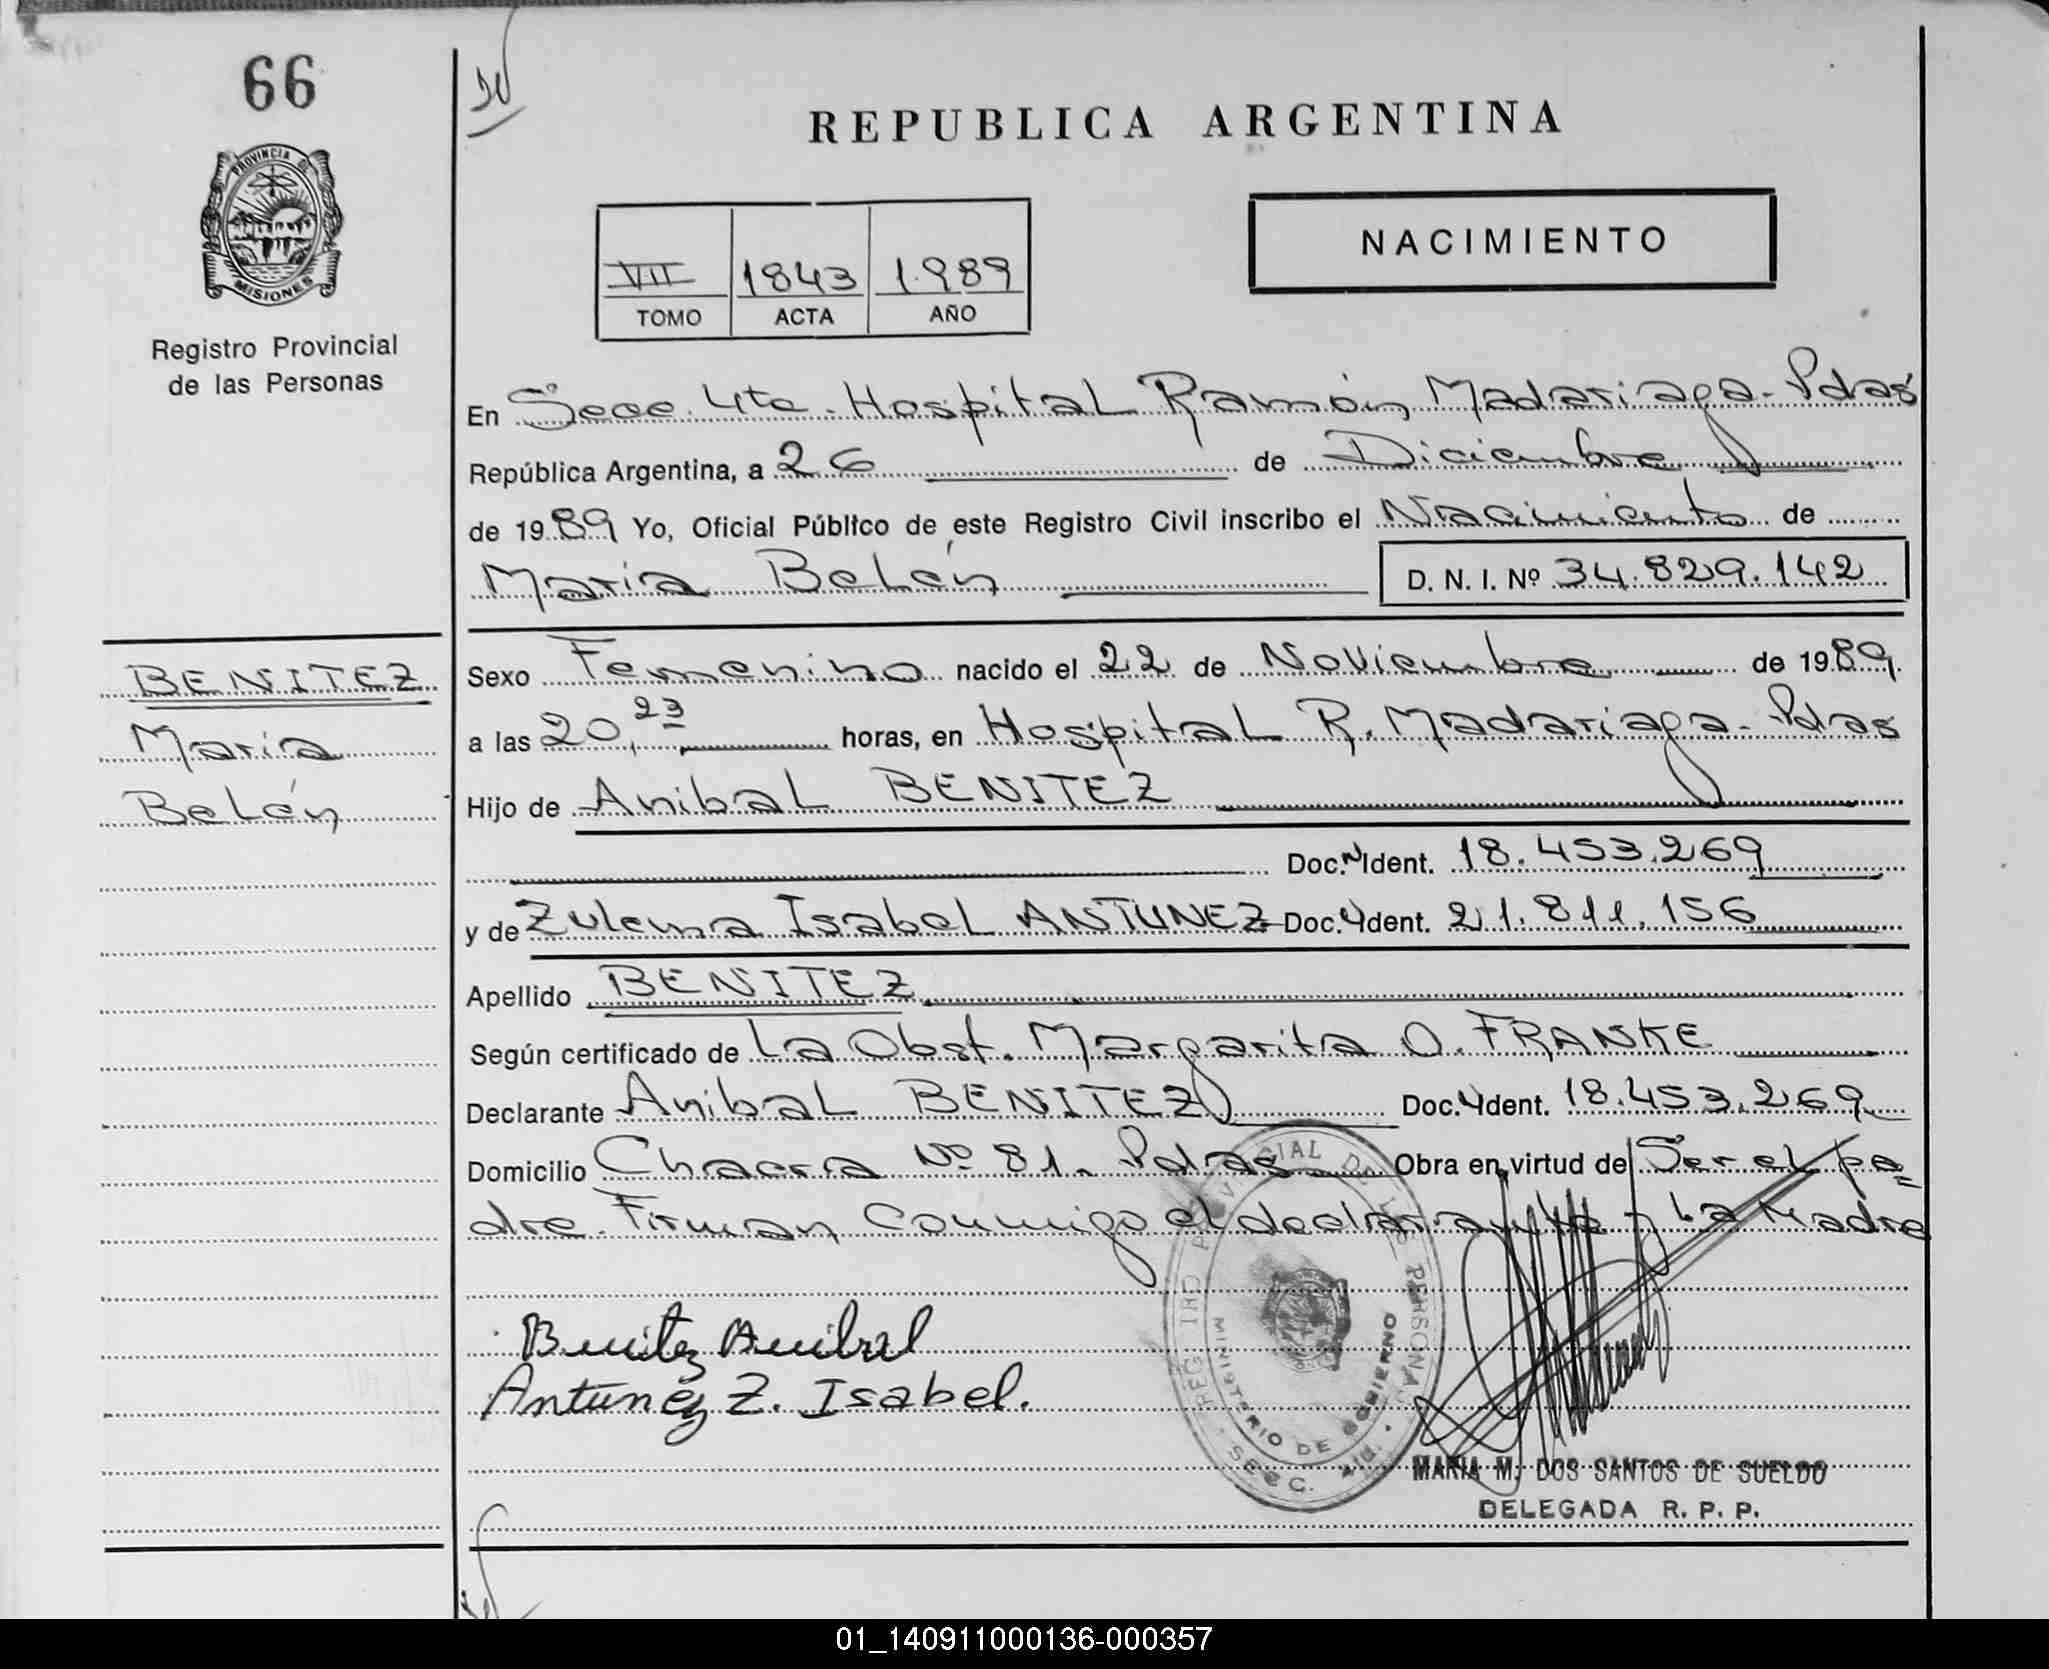 66
PROVINCIA DE
MISIONES
Registro Provincial
de las Personas
REPUBLICA ARGENTINA
NACIMIENTO
VII 1843 1989
TOMO ACTA AÑO
En Secc. 4ta. Hospital Ramón Madariaga - Pdas
República Argentina, a 26 de Diciembre
de 1989 Yo, Oficial Público de este Registro Civil inscribo el Nacimiento de
María Belén D. N. I. Nº 34.829.142
BENITEZ
María
Belén
Sexo Femenino nacido el 22 de Noviembre de 1989.
a las 20,23 horas, en Hospital R. Madariaga - Pdas
Hijo de Anibal BENITEZ
Doc. N Ident. 18.453.269
y de Zulema Isabel ANTUNEZ Doc. Ident. 21.811.156
Apellido BENITEZ
Según certificado de La Obst. Margarita O. FRANKE
Declarante Anibal BENITEZ Doc. Ident. 18.453.269
Domicilio Chacra Nº 81. Pdas Obra en virtud de Ser el pa=
dre. Firman Conmigo el declarante y La Madre
Benitez Anibal
Antunez Z. Isabel.
REGISTRO PROVINCIAL DE LAS PERSONAS
MINISTERIO DE GOBIERNO
SECC. 4ta.
MARIA M. DOS SANTOS DE SUELDO
DELEGADA R. P. P.
01_140911000136-000357